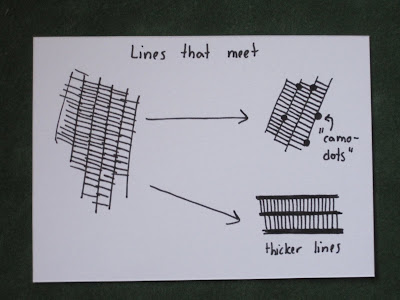 Lines that meet
"camo-
dots"
thicker lines